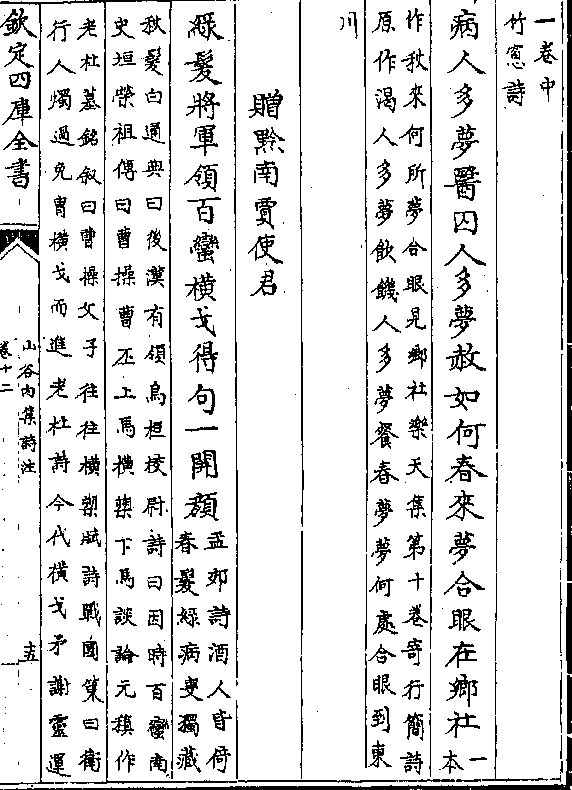 一卷中
竹窻詩
病人多夢醫囚人多夢赦如何春來夢合眼在鄉社一
本
作秋來何所夢合眼見鄉社樂天集第十卷寄行簡詩
原作渴人多夢飲饑人多夢餐春夢夢何處合眼到東
川
贈黔南賈使君
綠髮將軍領百蠻橫戈得句一開顏孟郊詩酒人皆倚
春髮綠病叟獨藏
秋髮白通典曰後漢有領烏桓校尉詩曰因時百蠻南
史垣榮祖傳曰曹操曹丕上馬橫槊下馬談論元稹作
老杜墓銘叙曰曹操父子往往橫槊賦詩戰國策曰衛
行人燭過免胄橫戈而進老杜詩今代橫戈矛謝靈運
欽定四庫全書
山谷内集詩注
卷十二
十五